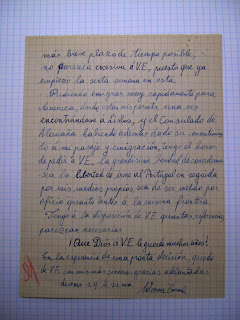 más breve plazo de tiempo posible,
no parezca excesiva a V.E., puesto que ya
empiezo la sexta semana en esta.
Pudiendo emigrar muy rapidamente para
America, donde estan mis parents, una vez
encontrándome à Lisboa, y el Consulado de
Alemaña habiendo además dado su
to à mi pasaje y emigración, tengo el honor
de pedir à V.E. la grandisima bondad de
sea la libertad de irme al Portugal en seguida
por mis medios propios, sea de ser
oficio gratuito ante à la misma frontera.
Tengo a la disposición de V.E. garantias,
parezcan necesarias
¡Que Dios à V.E. le guarde muchos años!
En la esperanza de una pronta decision, quedo
de V.E. con mis más sinceras gracias adelantadas